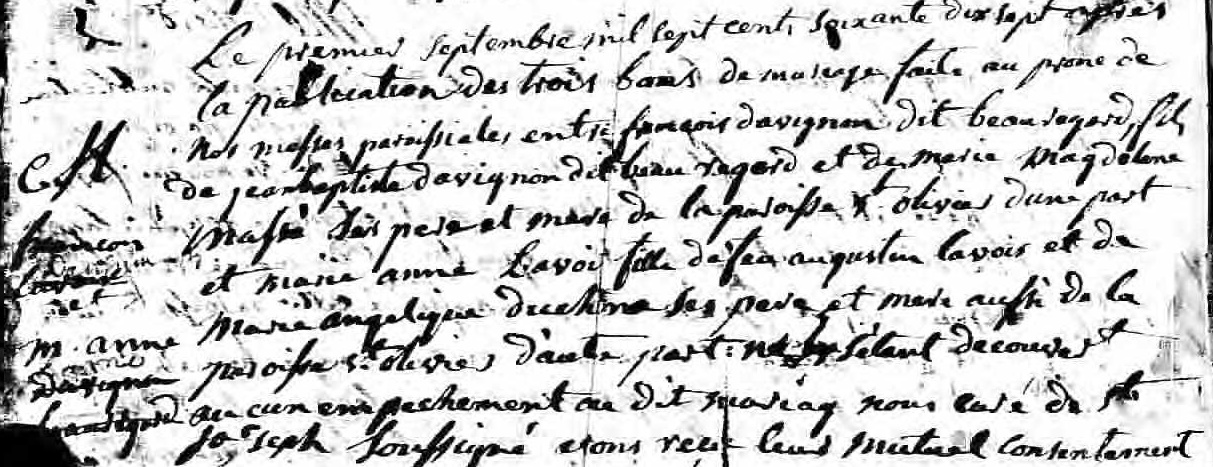 Le premier septembre mil sept cents soixante dix sept apres
la publication des trois bans de mariage faite au prone de
nos messes paroissiales entre françois davignon dit beauregard, fils
de jean baptiste davignon dit beauregard et de marie Magdelene
Massé ses pere et mere de la paroisse st. olivier dune part
et marie anne Lavoi fille de feu augustin lavois et de
Marie angelique duchene ses pere et mere aussi de la
paroisse st. olivier d'autre part. ne s'etant decouvert
aucun empechement au dit mariag nous curé de st
joseph soussigné avons reçu leur mutuel consentement
M.
françois
lavois
et
m. anne
davignon
beauregard